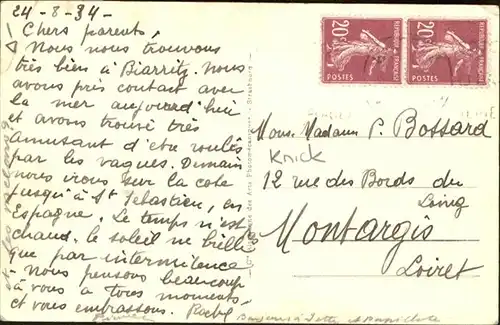 24-8-34-
Chers parents,
Nous nous trouvons
très bien à Biarritz. Nous
avons pris contact avec
la mer aujourd'hui
et avons trouvé très
amusant d'être roulés
par les vagues. Demain
nous irons sur la cote
jusqu'à St Sébastien, en
Espagne. Le temps n'est
chaud. le soleil ne brille
que par intermittence
Nous pensons beaucoup
à vous à tous moments
et vous embrassons.
20c
REPUBLIQUE FRANÇAISE
POSTES
20c
REPUBLIQUE FRANÇAISE
POSTES
Mons. Madame P. Bossard
Knick
12 rue des Bords du
Loing
Montargis
Loiret